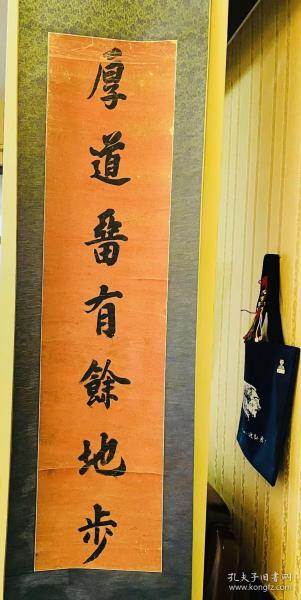 厚道畱有餘地步
孔夫子旧书网
www.kongfz.com